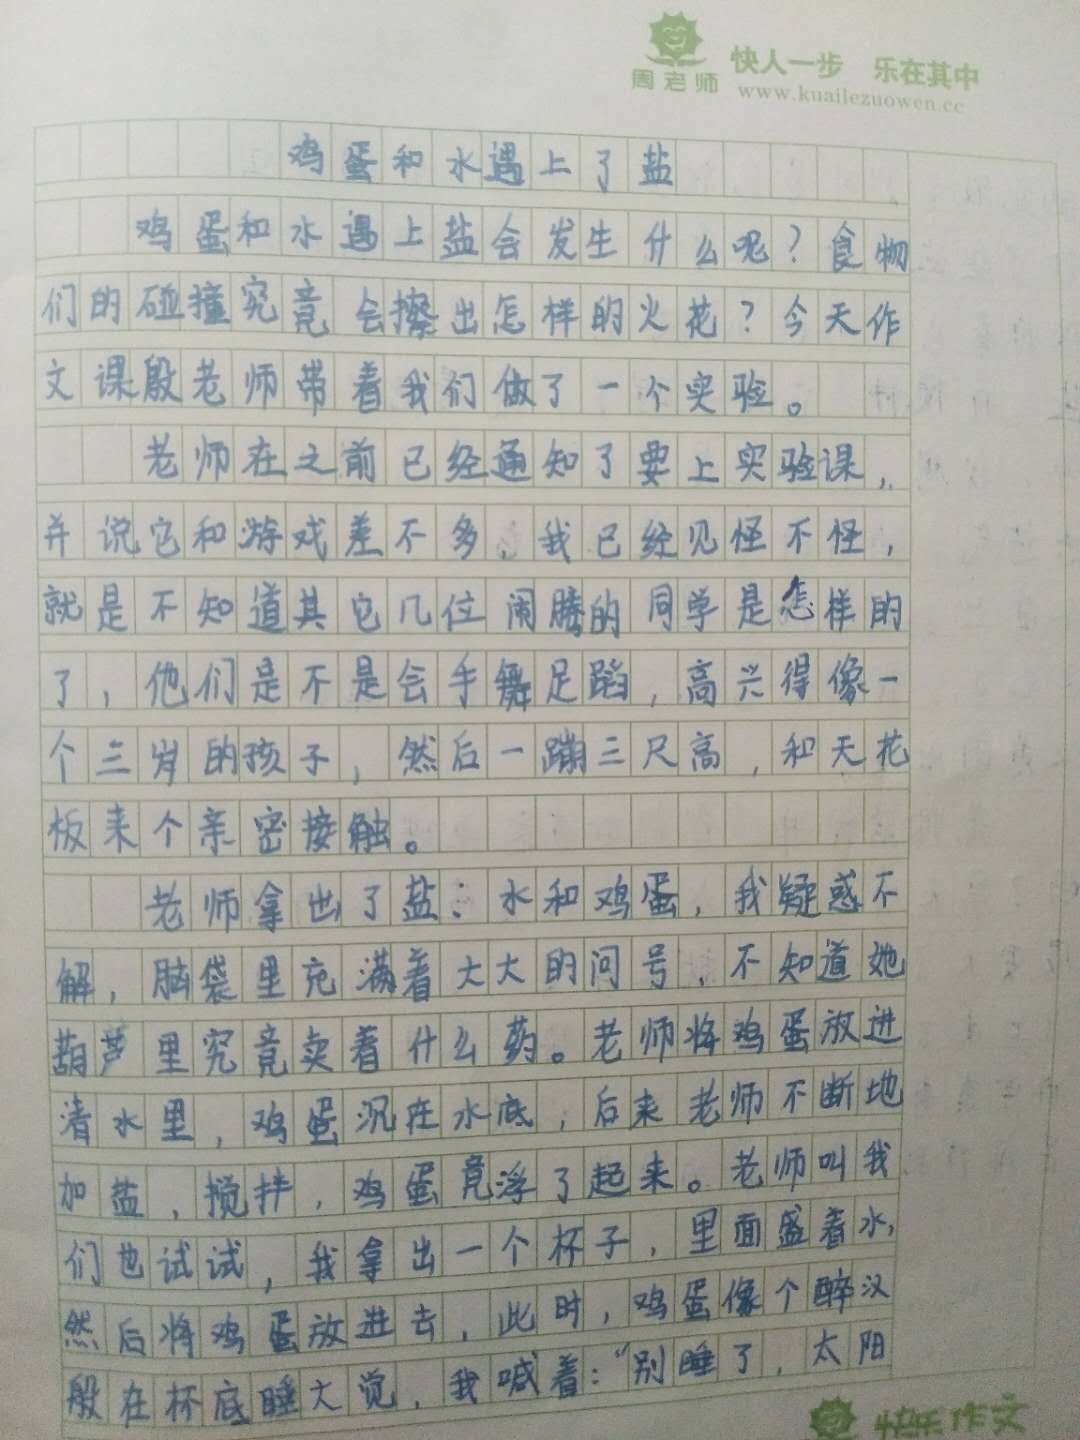 周老师 快人一步 乐在其中
www.kuailezuowen.cc
鸡蛋和水遇上了盐
鸡蛋和水遇上盐会发生什么呢？食物
们的碰撞究竟会擦出怎样的火花？今天作
文课殷老师带着我们做了一个实验。
老师在之前已经通知了要上实验课，
并说它和游戏差不多，我已经见怪不怪，
就是不知道其它几位闹腾的同学是怎样的
了，他们是不是会手舞足蹈，高兴得像一
个三岁的孩子，然后一蹦三尺高，和天花
板来个亲密接触。
老师拿出了盐：水和鸡蛋，我疑惑不
解，脑袋里充满着大大的问号，不知道她
葫芦里究竟卖着什么药。老师将鸡蛋放进
清水里，鸡蛋沉在水底，后来老师不断地
加盐，搅拌，鸡蛋竟浮了起来。老师叫我
们也试试，我拿出一个杯子，里面盛着水，
然后将鸡蛋放进去，此时，鸡蛋像个醉汉
般在杯底睡大觉，我喊着：“别睡了，太阳
快乐作文